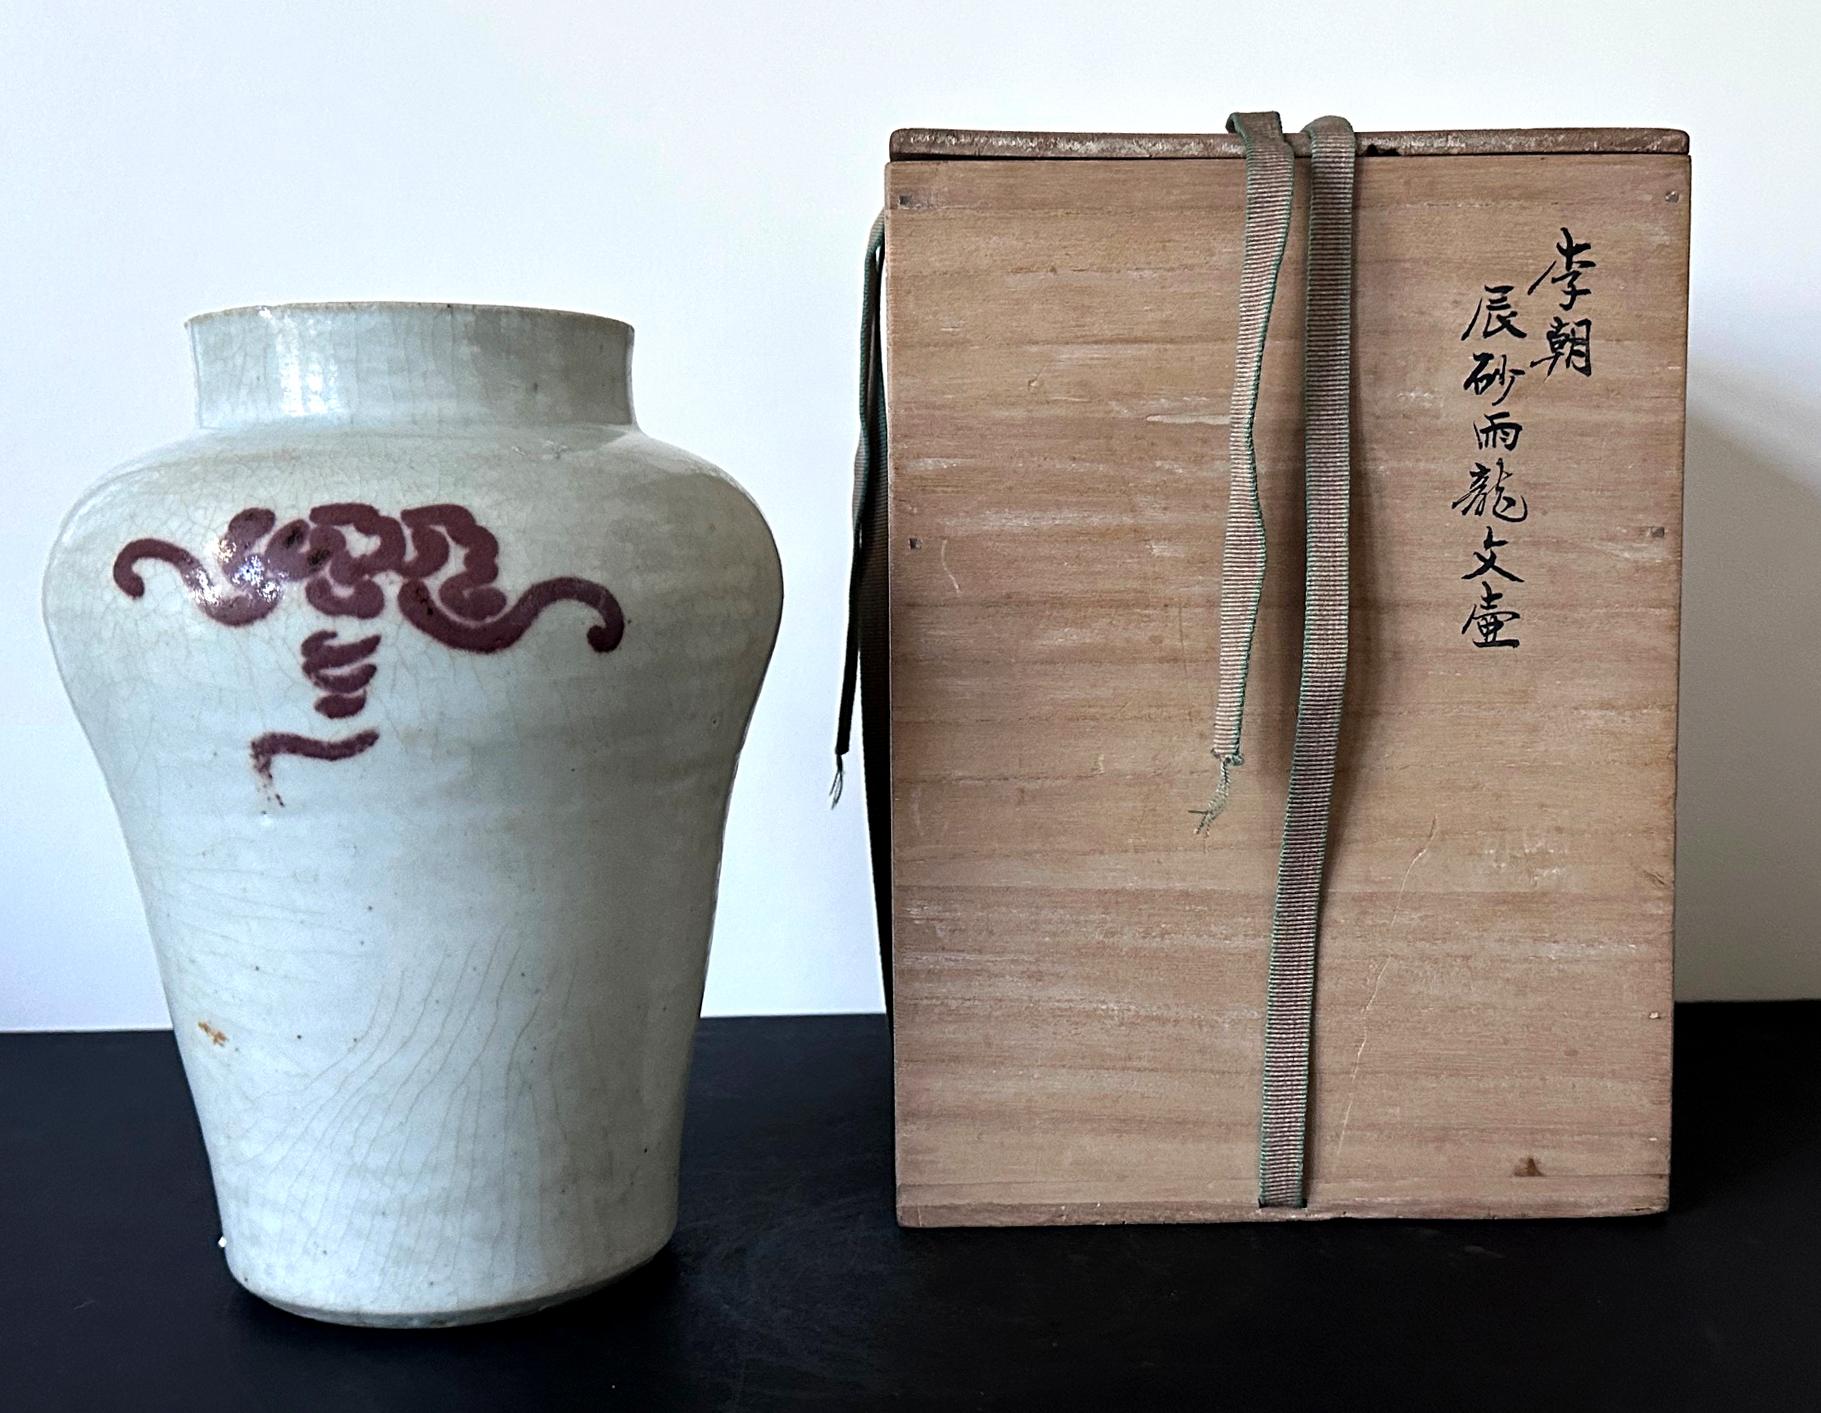 李朝
辰砂雨龍文壷